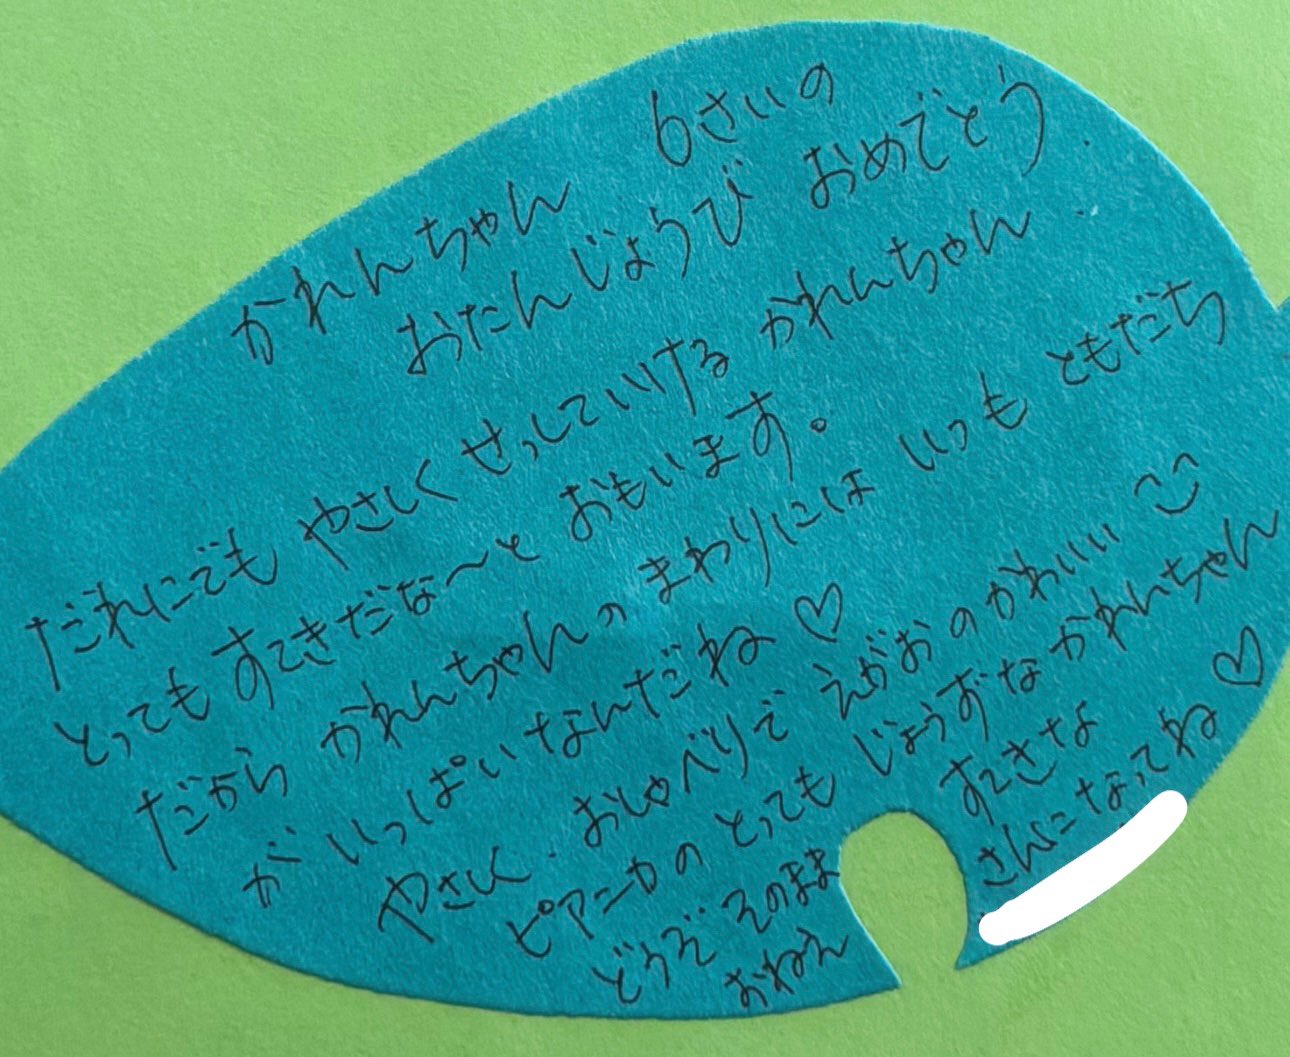 かれんちゃん 6さいの
おたんじょうび おめでとう.
だれにでも やさしく せっしていける かれんちゃん.
とってもすてきだな〜と おもいます。
だから かれんちゃんのまわりには いつも ともだち
が いっぱいなんだね♡
やさしく.おしゃべりで えがおのかわいい
ピアニカの とっても じょうずな かれんちゃん
どうぞ そのまま すてきな
おねえさんになってね♡